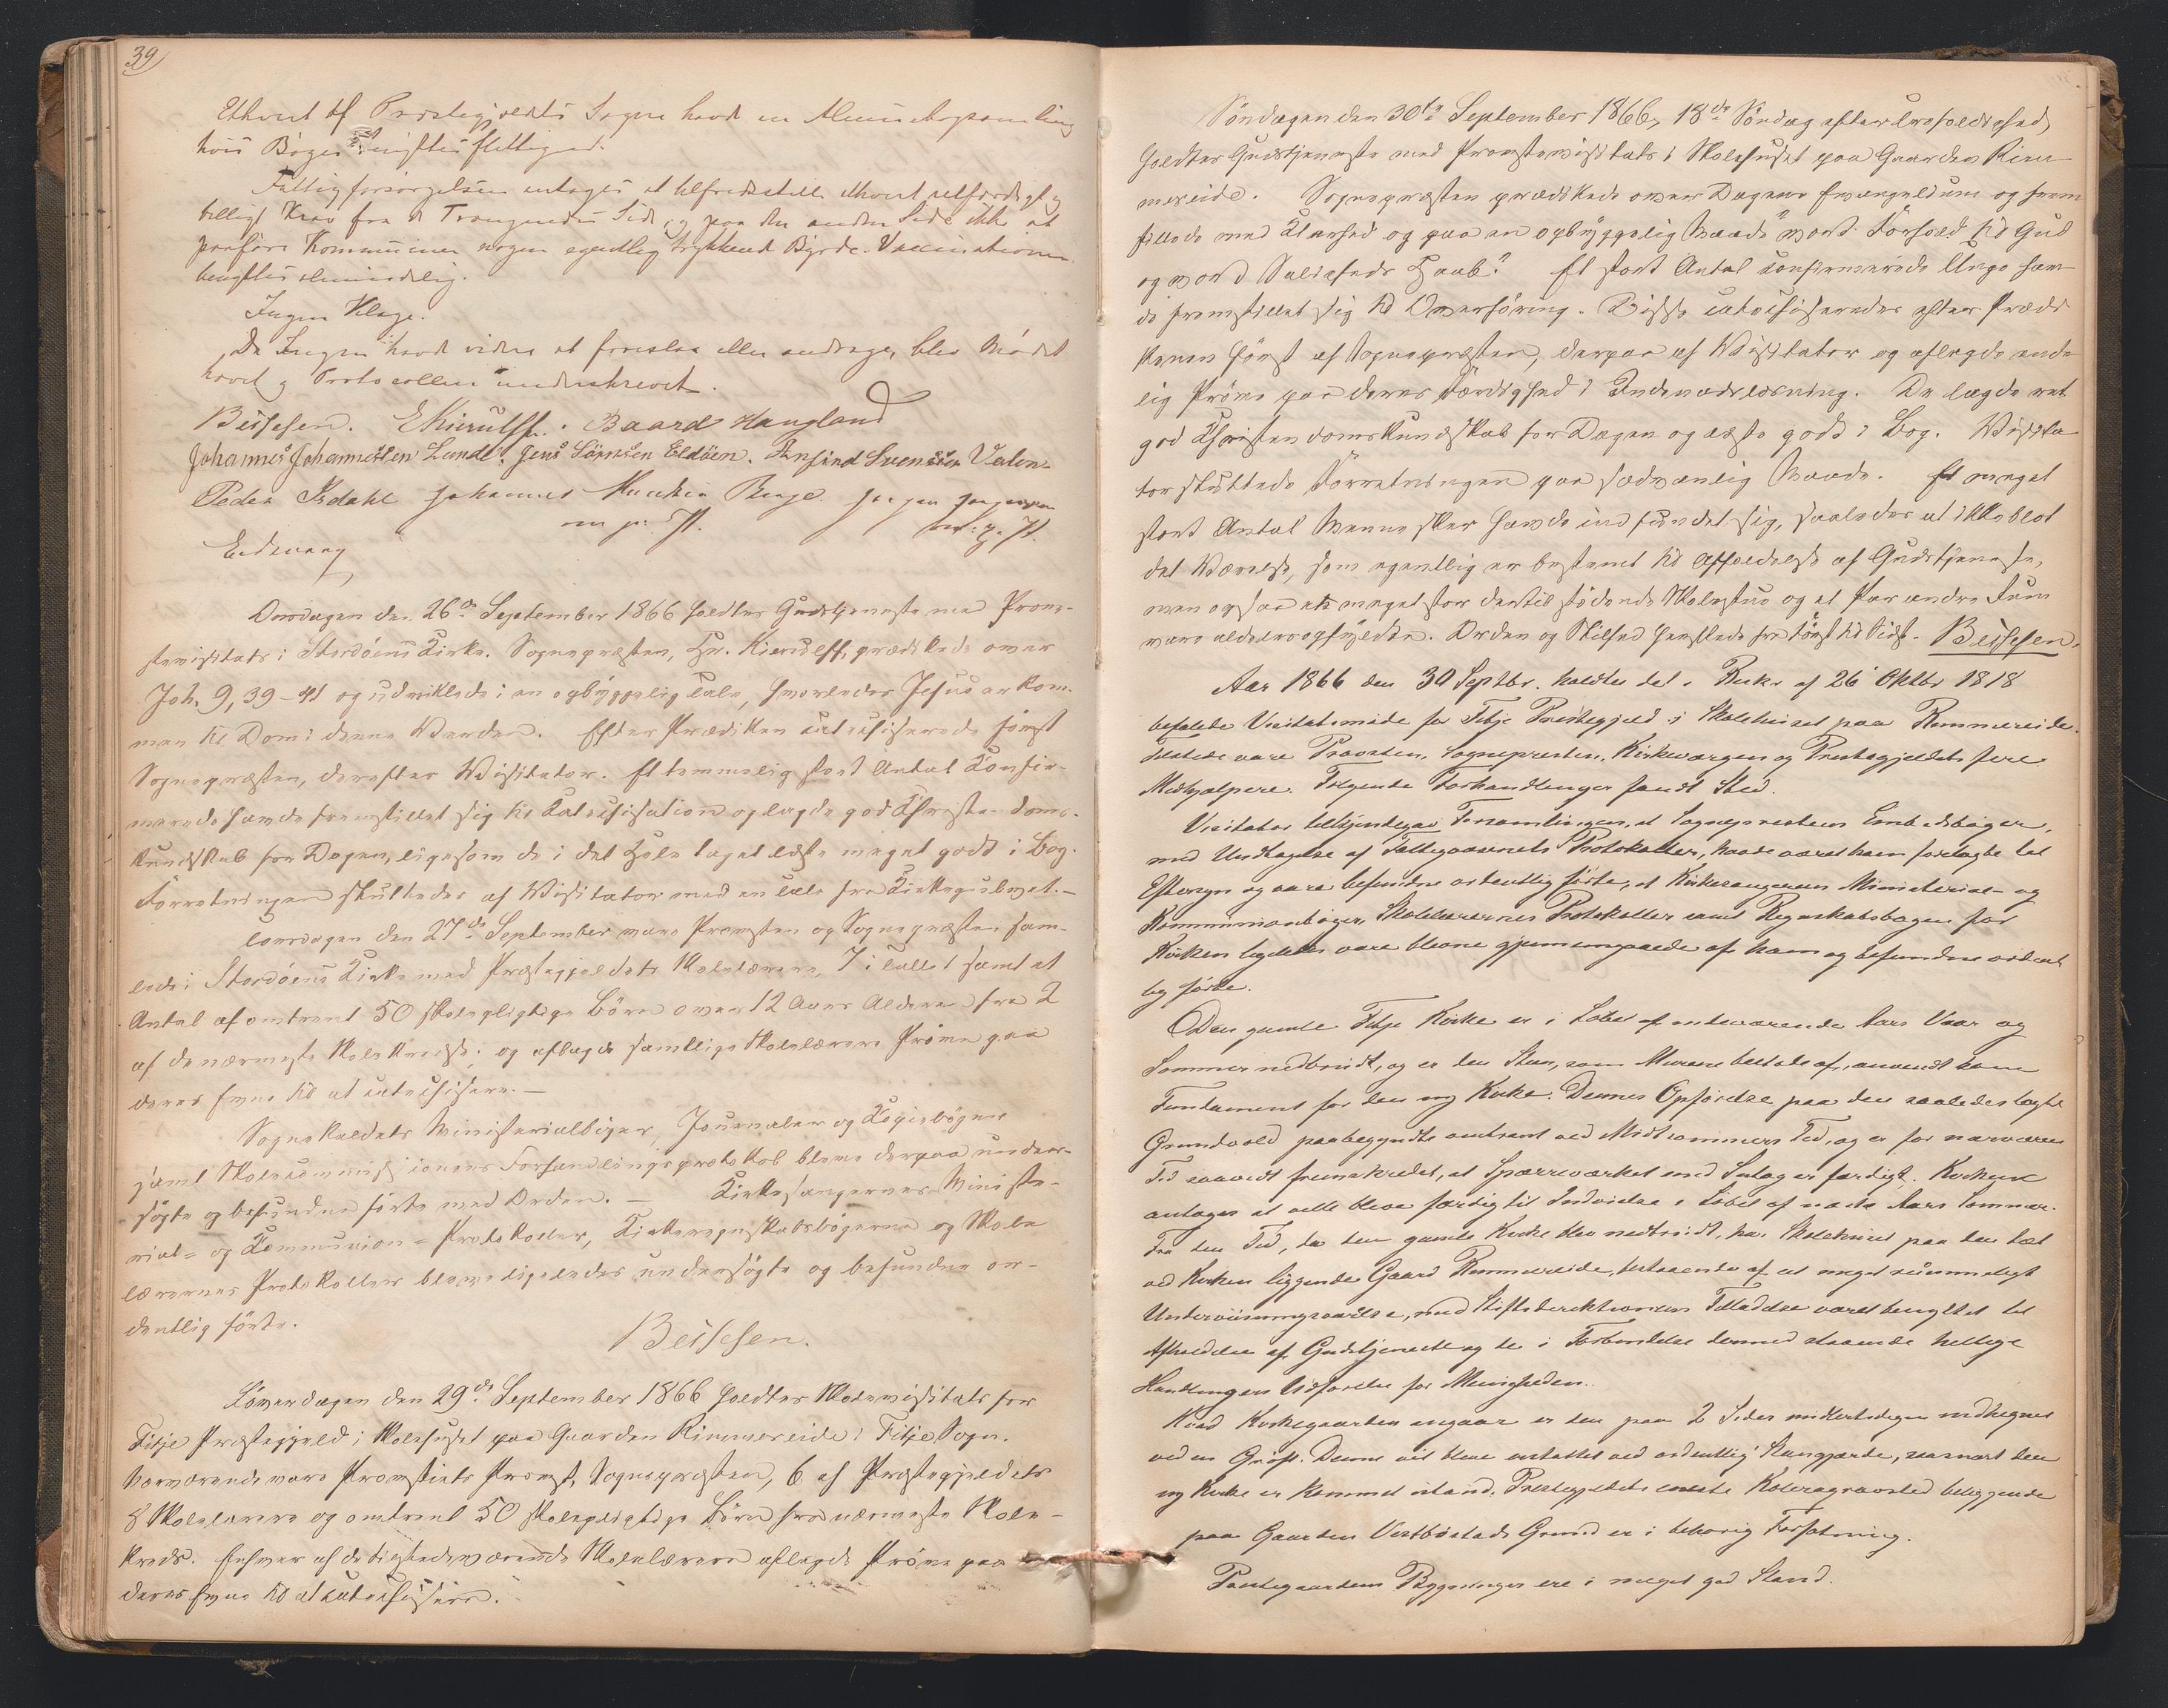 39
Ethvert af Præstegjeldets Sogne havde en Almuebogsamling
hvis Bøger benyttes flittigen.
Fattigforsørgelsen antages at tilfredsstille ethvert retfærdigt og
billigt Krav fra de Trængendes Side og paa den anden Side ikke at
paaføre Kommunen nogen egentlig trykkende Byrde. Vaccinationen
benyttes almindelig.
Ingen Klage.
Da Ingen havde videre at foreslaa eller andrage, blev Mødet
hævet og Protocollen underskrevet.
Beissen. E Kierulff. Baard Haugland
Johannes Johannessen Lunde. Jens Sörensen Eldöen. Svensen Valen
Peder Isdahl Johannes Berge.
m. p. P. m. p. P.
Eidevaag
Onsdagen den 26de September 1866 holdtes Gudstjeneste med Prov-
stevisitats i Stordöens Kirke. Sognepræsten, Hr. Kierulff, prædikede over
Joh. 9, 39-41 og udviklede i en opbyggelig Tale, hvorledes Jesus er kom-
men til Dom i denne Verden. Efter Prædiken catechiserede først
Sognepræsten, derefter Visitator. Et temmelig stort Antal Konfir-
merede havde fremstillet sig til Katechisation og lagde god Christendoms-
kundskab for Dagen, ligesom de i det Hele taget læste meget godt i Bog.
Forretningen sluttedes af Visitator med en Tale fra Kirkegulvet.-
Torsdagen den 27de September vare Provsten og Sognepræsten sam-
lede i Stordöens Kirke med Præstegjeldets Skolelærere, 7 i Tallet samt et
Antal af omtrent 50 skolepligtige Börn over 12 Aars Alderen fra 2
af de nærmeste Skolekredse; og aflagde samtlige Skolelærere Prøve paa
deres Evne til at catechisere.-
Sognekaldets Ministerialbøger, Journaler og Kopibøger
samt Skolecommissionens Forhandlingsprotokol bleve derpaa under-
søgte og befundne førte med Orden. - Kirkesangernes Ministe-
rial- og Kommunion-Protokoller, Kirkeregnskabsbøgerne og Skole
lærernes Protokoller bleve ligeledes undersøgte og befundne or-
dentlig førte.
Beissen.
Löverdagen den 29de September 1866 holdtes Skolevisitats for
Fitje Præstegjeld i Skolehuset paa Gaarden Rimmereide i Fitje Sogn.
Nærværende vare Provstiets Provst, Sognepræsten, 6 af Præstegjeldets
8 Skolelærere og omtrent 50 skolepligtige Börn fra nærmeste Skole-
kreds. Enhver af de tilstedeværende Skolelærere aflagde Prøve paa
deres Evne til at catechisere.
Söndagen den 30te September 1866, 18de Söndag efter Trefoldighed,
holdtes Gudstjeneste med Provstevisitats i Skolehuset paa Gaarden Rim-
mereide. Sognepræsten prædikede over Dagens Evangelium og frem
stillede med Klarhed og paa en opbyggelig Maade "vort Forhold til Gud
og vort Saligheds Haab". Et stort Antal confirmerede Unge hav-
de fremstillet sig til Overhøring. Disse catechiseredes efter Prædi
kenen først af Sognepræsten, derpaa af Visitator og aflagde ende
lig Prøve paa deres Færdighed i Indenadslæsning. De lagde ret
god Christendomskundskab for Dagen og læste godt i Bog. Visita
tor sluttede Forretningen paa sædvanlig Maade. Et meget
stort Antal Mennesker havde indfundet sig, saaledes at ikke blot
det Værelse, som egentlig er bestemt til Afholdelse af Gudstjeneste,
men ogsaa en meget stor dertil stødende Skolestue og et Par andre Rum
vare aldeles opfyldte. Orden og Stilhed herskede fra først til sidst. Beissen.
Aar 1866 den 30 Septbr. holdtes det i Reskr. af 26 Oktbr 1818
befalede Visitatsmøde for Fitje Præstegjeld i Skolehuset paa Rimmereide.
Tilstede vare Provsten, Sognepresten, Kirkeværgen og Prestegjeldets flere
Medhjælpere. Følgende Forhandlinger fandt Sted.
Visitator tilkjendegav Forsamlingen, at Sogneprestens Embedsbøger,
med Undtagelse af Fattigvæsenets Protokoller, havde været ham forelagte til
Eftersyn og vare befundne ordentlig førte, at Kirkesangerens Ministerial- og
Kommunionbøger, Skolelærernes Protokoller samt Regnskabsbogen for
Kirken ligeledes vare blevne gjennemgaaede af ham og befundne ordent
lig førte.
Den gamle Fitje Kirke er i Løbet af indeværende Aars Vaar og
Sommer nedbrudt, og er den Sten, som Murene bestode af, anvendt som
Fundament for den ny Kirke. Dennes Opførelse paa den saaledes lagte
Grundvold paabegyndte omtrent ved Midtsommers Tid, og er for nærværen
Tid saavidt fremskredet, at Sperreværket med Sutag er færdigt. Kirken
antages at ville blive færdig til Indvielse i Løbet af næste Aars Sommer.
Fra den Tid, da den gamle Kirke blev nedbrudt, har Skolehuset paa den tæt
ved Kirken liggende Gaard Rimmereide, bestaaende af et meget rummeligt
Underviisningsværelse, med Stiftsdirektionens Tilladelse været benyttet til
Afholdelse af Gudstjeneste og de i Forbindelse dermed staaende hellige
Handlingers Udførelse for Menigheden.
Hvad Kirkegaarden angaar er den paa 2 Sider midlertidigen indhegnet
ved en Grøft. Denne vil blive erstattet ved ordentlig Stengjærde, saasnart den
ny Kirke er kommet istand. Prestegjeldets eneste Koleragravsted beliggende
paa Gaarden Vestbøstads Grund er i behørig Forfatning.
Prestegaardens Bygninger ere i meget god Stand.